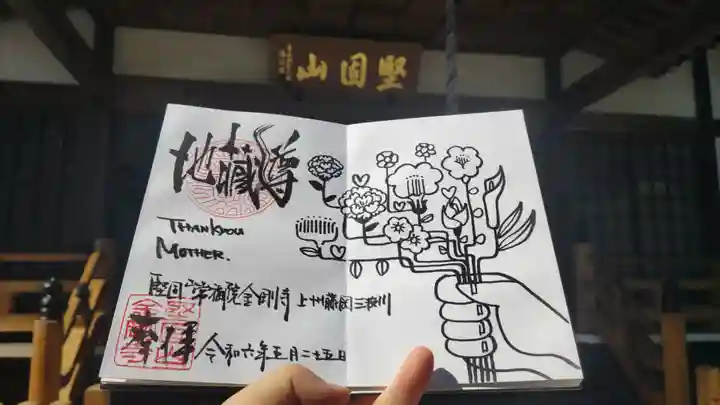 山固堅
地蔵尊
THANKYOU
MOTHER.
堅固山常福院金剛寺 上州藤岡三波川
奉拝
令和六年五月二十五日